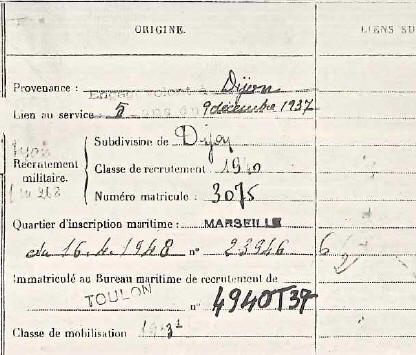 ORIGINE.
LIENS SU
Provenance : Engag. volont. à Dijon
Lien au service : 5 ans du 9 décembre 1937
Lyon
Recrutement militaire.
Subdivision de Dijon
Classe de recrutement : 1940
Numéro matricule : 3075
Quartier d'inscription maritime : MARSEILLE
du 16.4.1948 n° 23946
Immatriculé au Bureau maritime de recrutement de
TOULON n° 4940T37
Classe de mobilisation